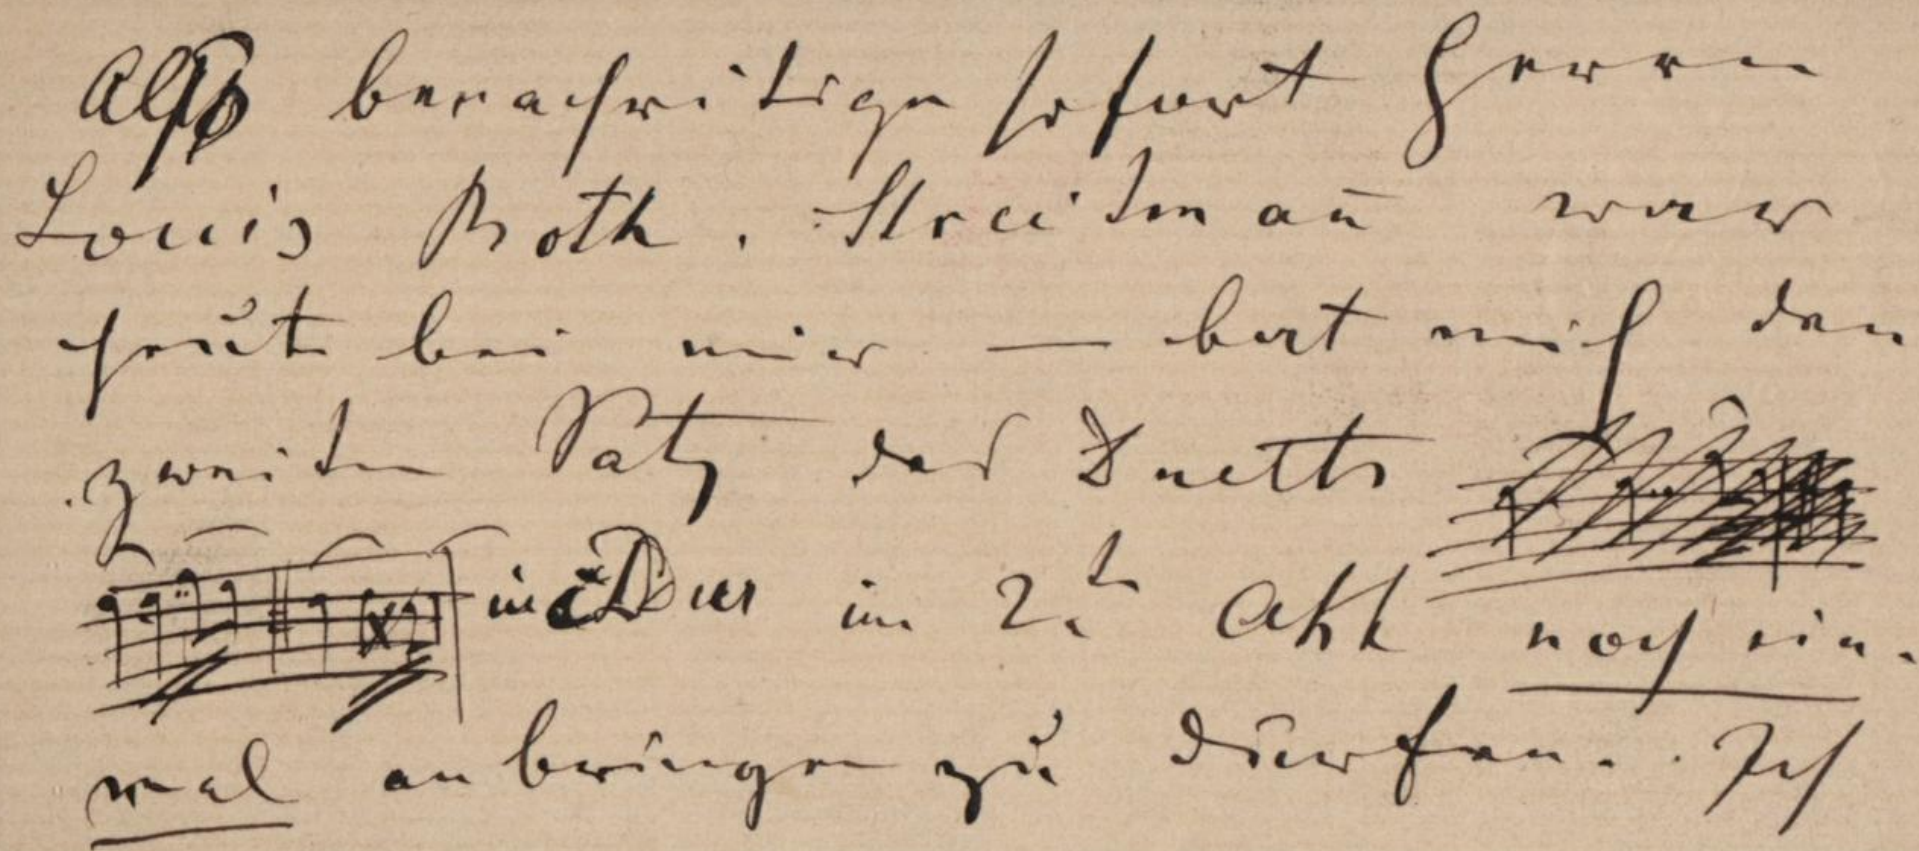 Also benachrichtige sofort Herrn
Louis Roth. Streitmañ war
heute bei mir — bat mich den
zweiten Satz des Duetts
in Dur im 2t Akt noch ein-
mal anbringen zu dürfen. Ich